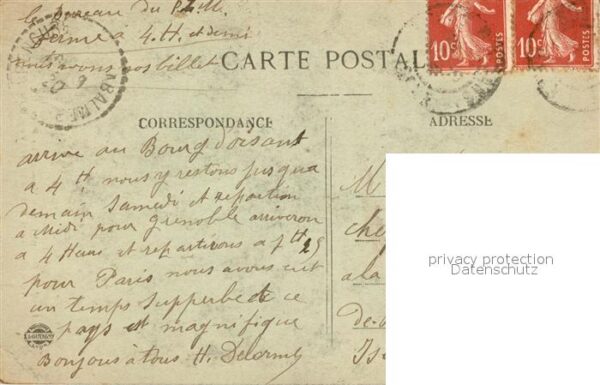 le bureau du P.L.M.
ferme a 4. H. et demi
nous avons nos billet
CARTE POSTALE
10c POSTES
10c POSTES
CORRESPONDANCE
ADRESSE
arrive au Bourg d'oisant
a 4 H nous y restons jusqua
demain Samedi et repartion
a Midi pour grenoble arriveron
a 4 Heures et repartirons a 7 H 25
pour Paris nous avons eut
un temps supperbe de ce
pays est magnifique
Bonjous à tous H.
M
che
a la
de
Isè
privacy protection
Datenschutz